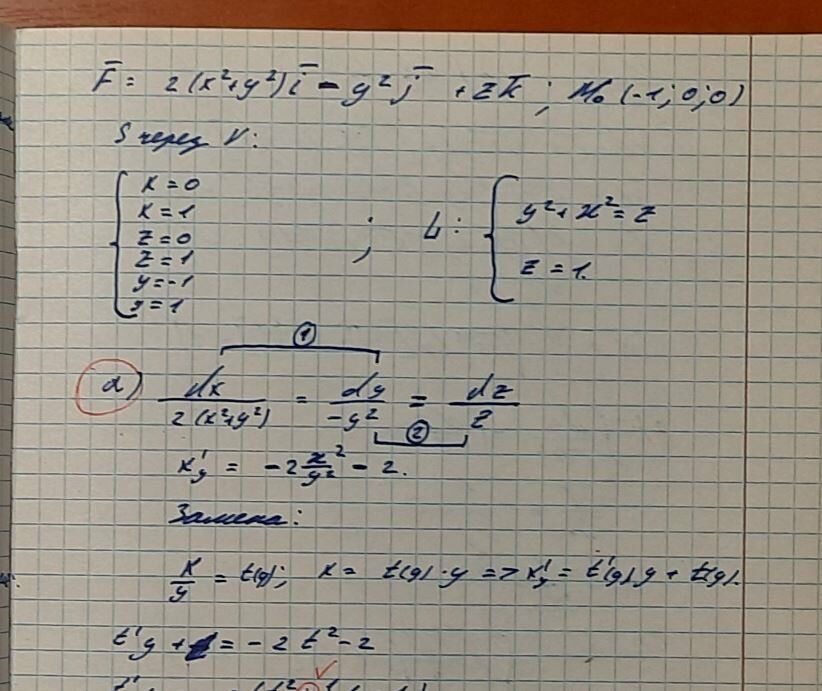 F̄ = 2(x²+y²)ī - y²j̄ + zk̄; M₀ (-1; 0; 0)
S через V:
x = 0
x = 1
z = 0
z = 1
y = -1
y = 1
; L: { y² + x² = z
z = 1.
①
а) dx/2(x²+y²) = dy/-y² = dz/z
②
x'y = -2 x²/y² - 2.
Замена:
x/y = t(y); x = t(y)·y => x'y = t'(y)y + t(y).
t'y + t = -2t² - 2